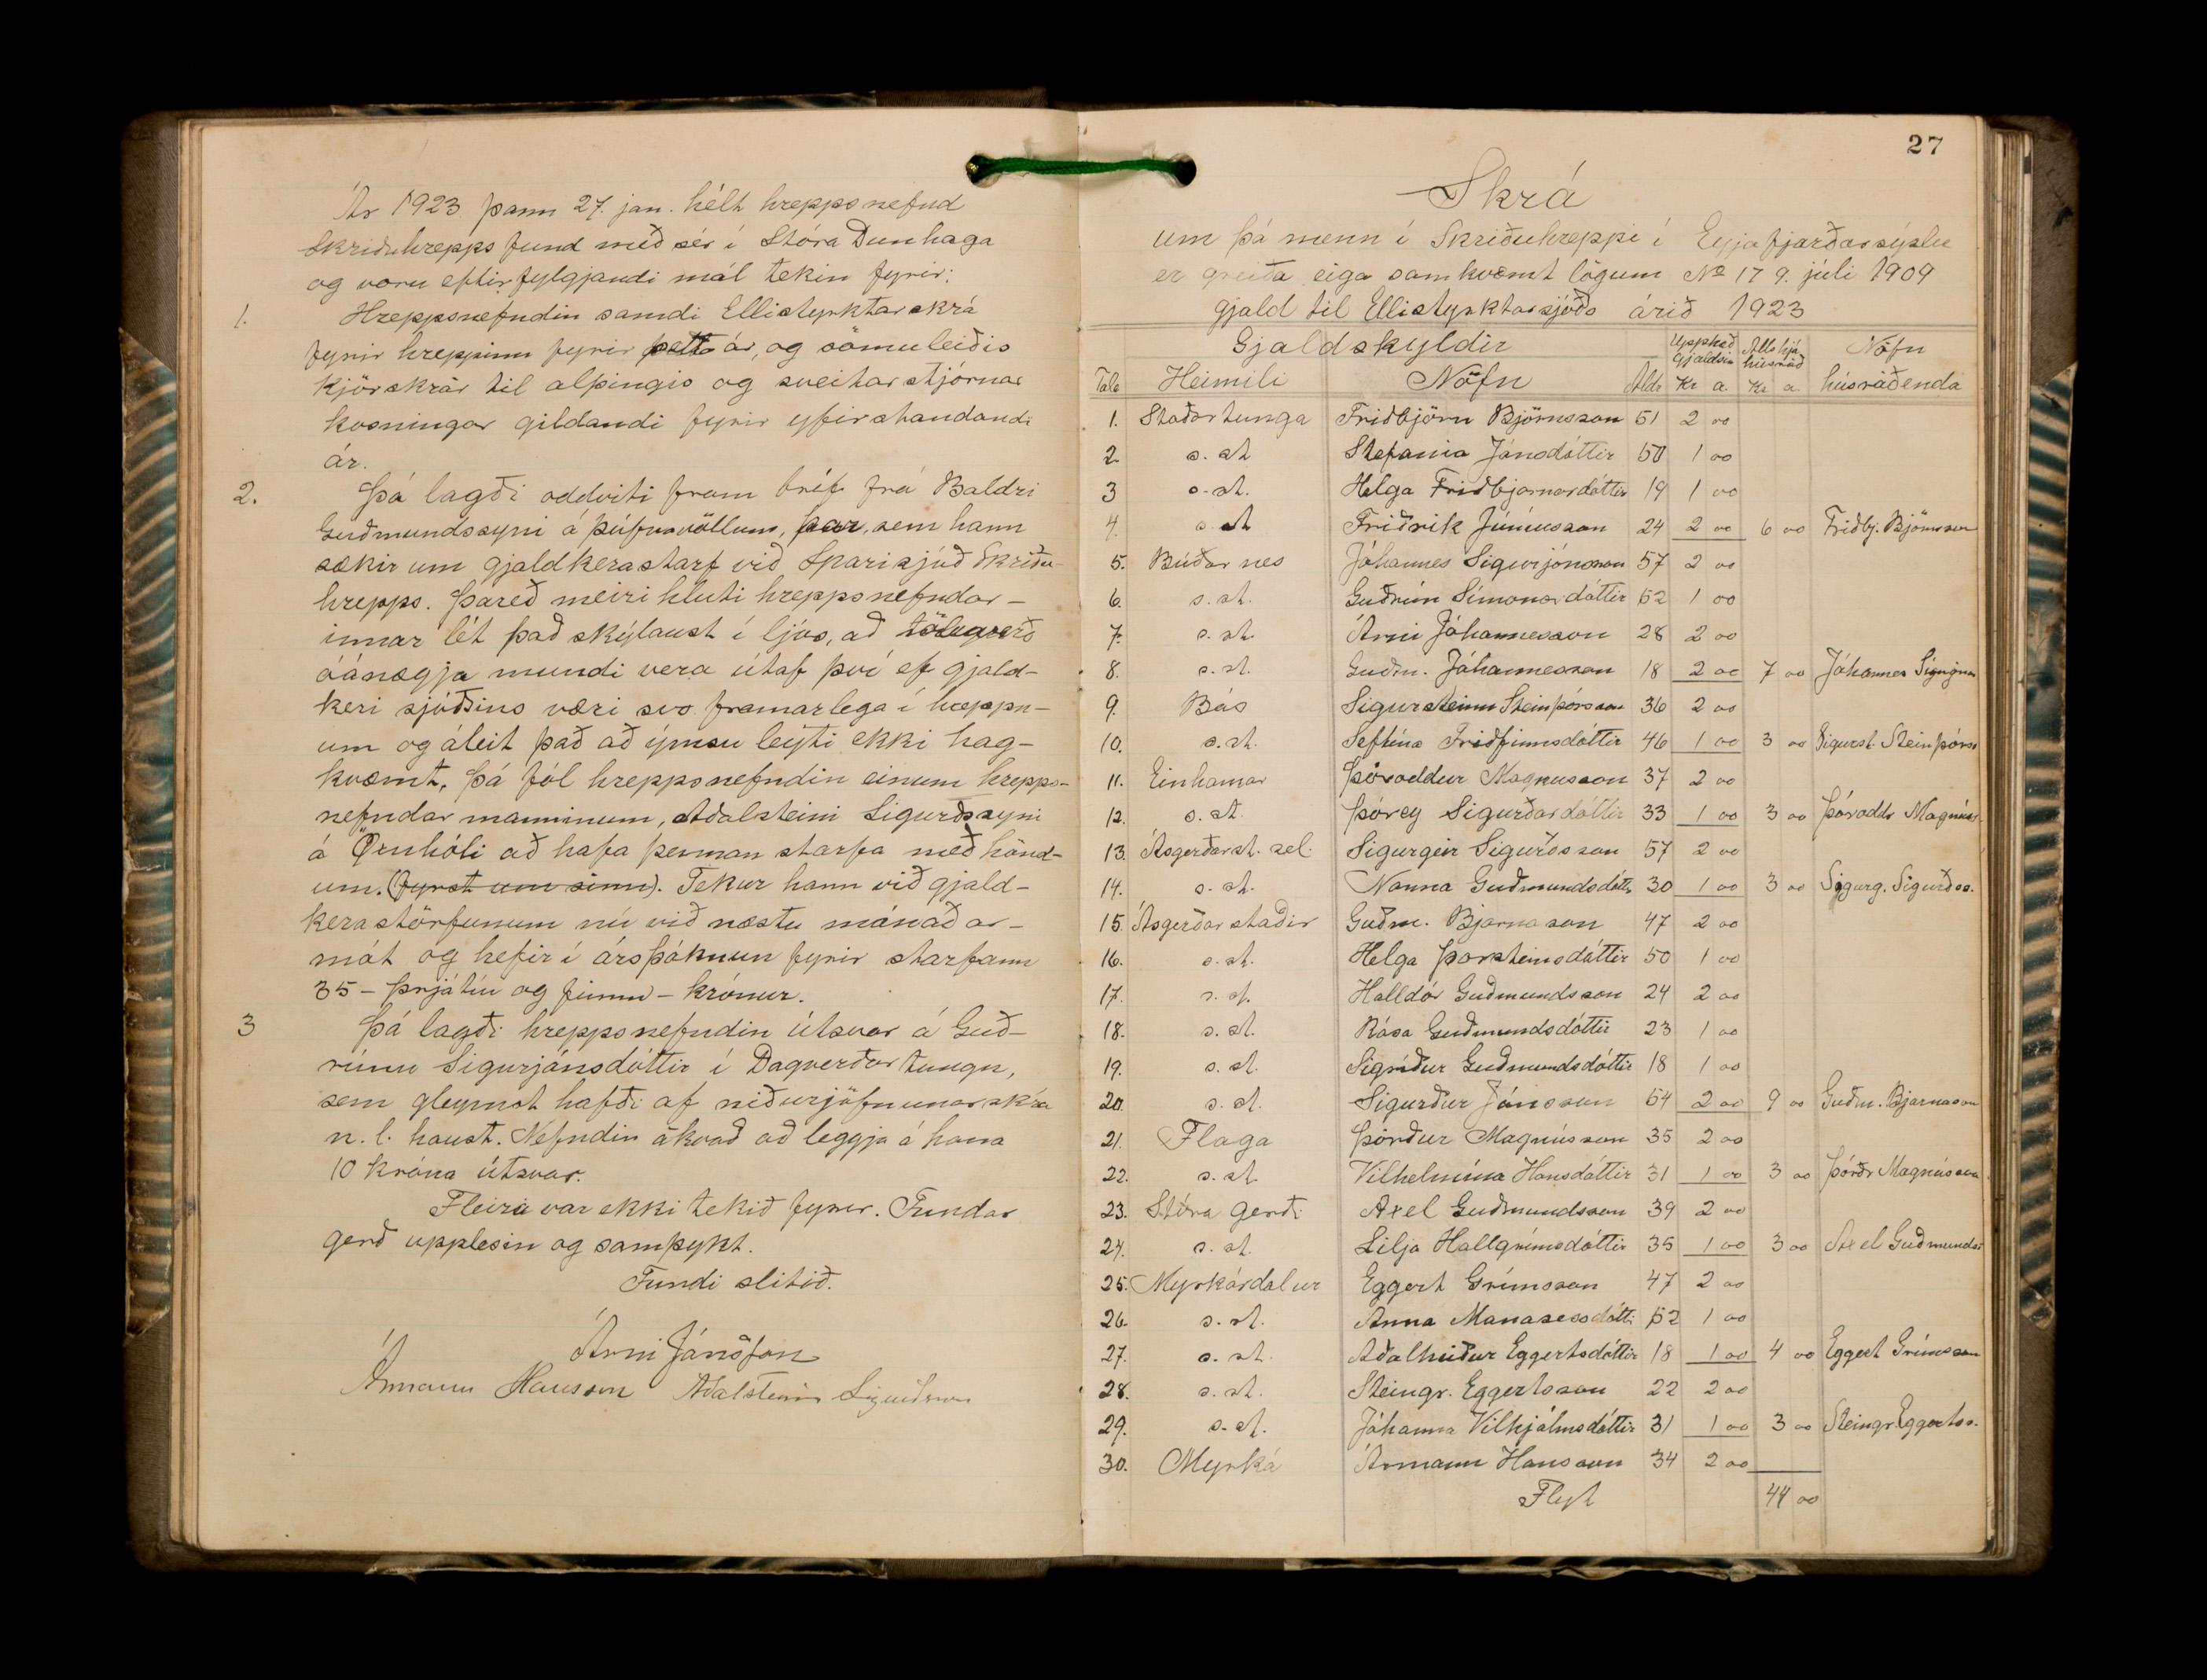 Ár 1923 þann 27. jan. hélt hreppsnefnd
Skriðuhrepps fund með sér í Stóra Dunhaga
og voru eftirfylgjandi mál tekin fyrir:
1. Hreppsnefndin samdi Ellistyrktarskrá
fyrir hreppinn fyrir þetta ár, og sömuleiðis
kjörskrár til alþingis og sveitarstjórnar
kosningar gildandi fyrir yfirstandandi
ár.
2. Þá lagði oddviti fram bréf frá Baldri
Guðmundssyni á Þúfnavöllum, þar, sem hann
sækir um gjaldkerastarf við Sparisjóð Skriðu-
hrepps. Þareð meiri hluti hreppsnefndar-
innar lét það skýlaust í ljós, að töluverð
óánægja mundi vera útaf því ef gjald-
keri sjóðsins væri svo framarlega í hreppn-
um og áleit það að ýmsu leyti ekki hag-
kvæmt. Þá fól hreppsnefndin einum hrepps-
nefndar manninum, Aðalsteini Sigurðssyni
á Öxnhóli að hafa þennan starfa með hönd-
um. (fyrst um sinn). Tekur hann við gjald-
kerastörfunum nú við næstu mánaðar-
mót og hefir í ársþóknun fyrir starfann
35 - þrjátíu og fimm - krónur.
3 Þá lagði hreppsnefndin útsvar á Guð-
rúnu Sigurjónsdóttir í Dagverðartungu,
sem gleymst hafði af niðurjöfnunarskrá
n. l. haust. Nefndin ákvað að leggja á hana
10 króna útsvar.
Fleira var ekki tekið fyrir. Fundar
gerð upplesin og samþykt.
Fundi slitið.
Árni Jónsson
Ármann Hansson Aðalsteinn Sigurðsson
27
Skrá
um þá menn í Skriðuhreppi í Eyjafjarðarsýslu
er greiða eiga samkvæmt lögum № 17 9. júlí 1909
gjald til Ellistyrktarsjóðs árið 1923
Gjaldskyldir Upphæð gjaldsin Alls hjá húsráð Nöfn
Tala Heimili Nöfn Aldr Kr a. Kr a. húsráðenda
1. Staðartunga Friðbjörn Björnsson 51 2 00
2 s. st Stefania Jónsdóttir 50 1 00
3 s. st. Helga Friðbjarnardóttir 19 1 00
4. s. st Friðrik Júníusson 24 2 00 6 00 Friðbj. Björnsson
5. Búðarnes Jóhannes Sigurjónsson 57 2 00
6. s. st. Guðrún Símonardóttir 52 1 00
7. s. st. Árni Jóhannesson 28 2 00
8. s. st. Guðm. Jóhannesson 18 2 00 7 00 Jóhannes Sigurjóns
9. Bás Sigursteinn Steinþórsson 36 2 00
10. s. st. Septína Friðfinnsdóttir 46 1 00 3 00 Sigurst. Steinþórss
11. Einhamar Þóroddur Magnusson 37 2 00
12. s. st. Þórey Sigurðardóttir 33 1 00 3 00 Þóroddr Magnúss
13. Ásgerðarst. sel. Sigurgeir Sigurðsson 57 2 00
14. s. st. Nanna Guðmundsdóttr 30 1 00 3 00 Sigurg. Sigurðss.
15. Ásgerðarstaðir Guðm. Bjarnason 47 2 00
16. s. st. Helga Þorsteinsdóttir 50 1 00
17. s. st. Halldór Guðmundsson 24 2 00
18. s. st. Rósa Guðmundsdóttir 23 1 00
19. s. st. Sigríður Guðmundsdóttir 18 1 00
20. s. st. Sigurður Jónsson 54 2 00 9 00 Guðm. Bjarnason
21. Flaga Þórður Magnússon 35 2 00
22. s. st. Vilhelmína Hansdóttir 31 1 00 3 00 Þórðr Magnússon
23. Stóra gerði Axel Guðmundsson 39 2 00
24. s. st. Lilja Hallgrímsdóttir 35 1 00 3 00 Axel Guðmundss
25. Myrkárdalur Eggert Grímsson 47 2 00
26. s. st. Anna Manasesdótti 52 1 00
27. s. st. Aðalheiður Eggertsdóttir 18 1 00 4 00 Eggert Grímsson
28. s. st. Steingr. Eggertsson 22 2 00
29. s. st. Jóhanna Vilhjálmsdóttir 31 1 00 3 00 Steingr. Eggertss.
30. Myrká Ármann Hansson 34 2 00
Flyt 44 00